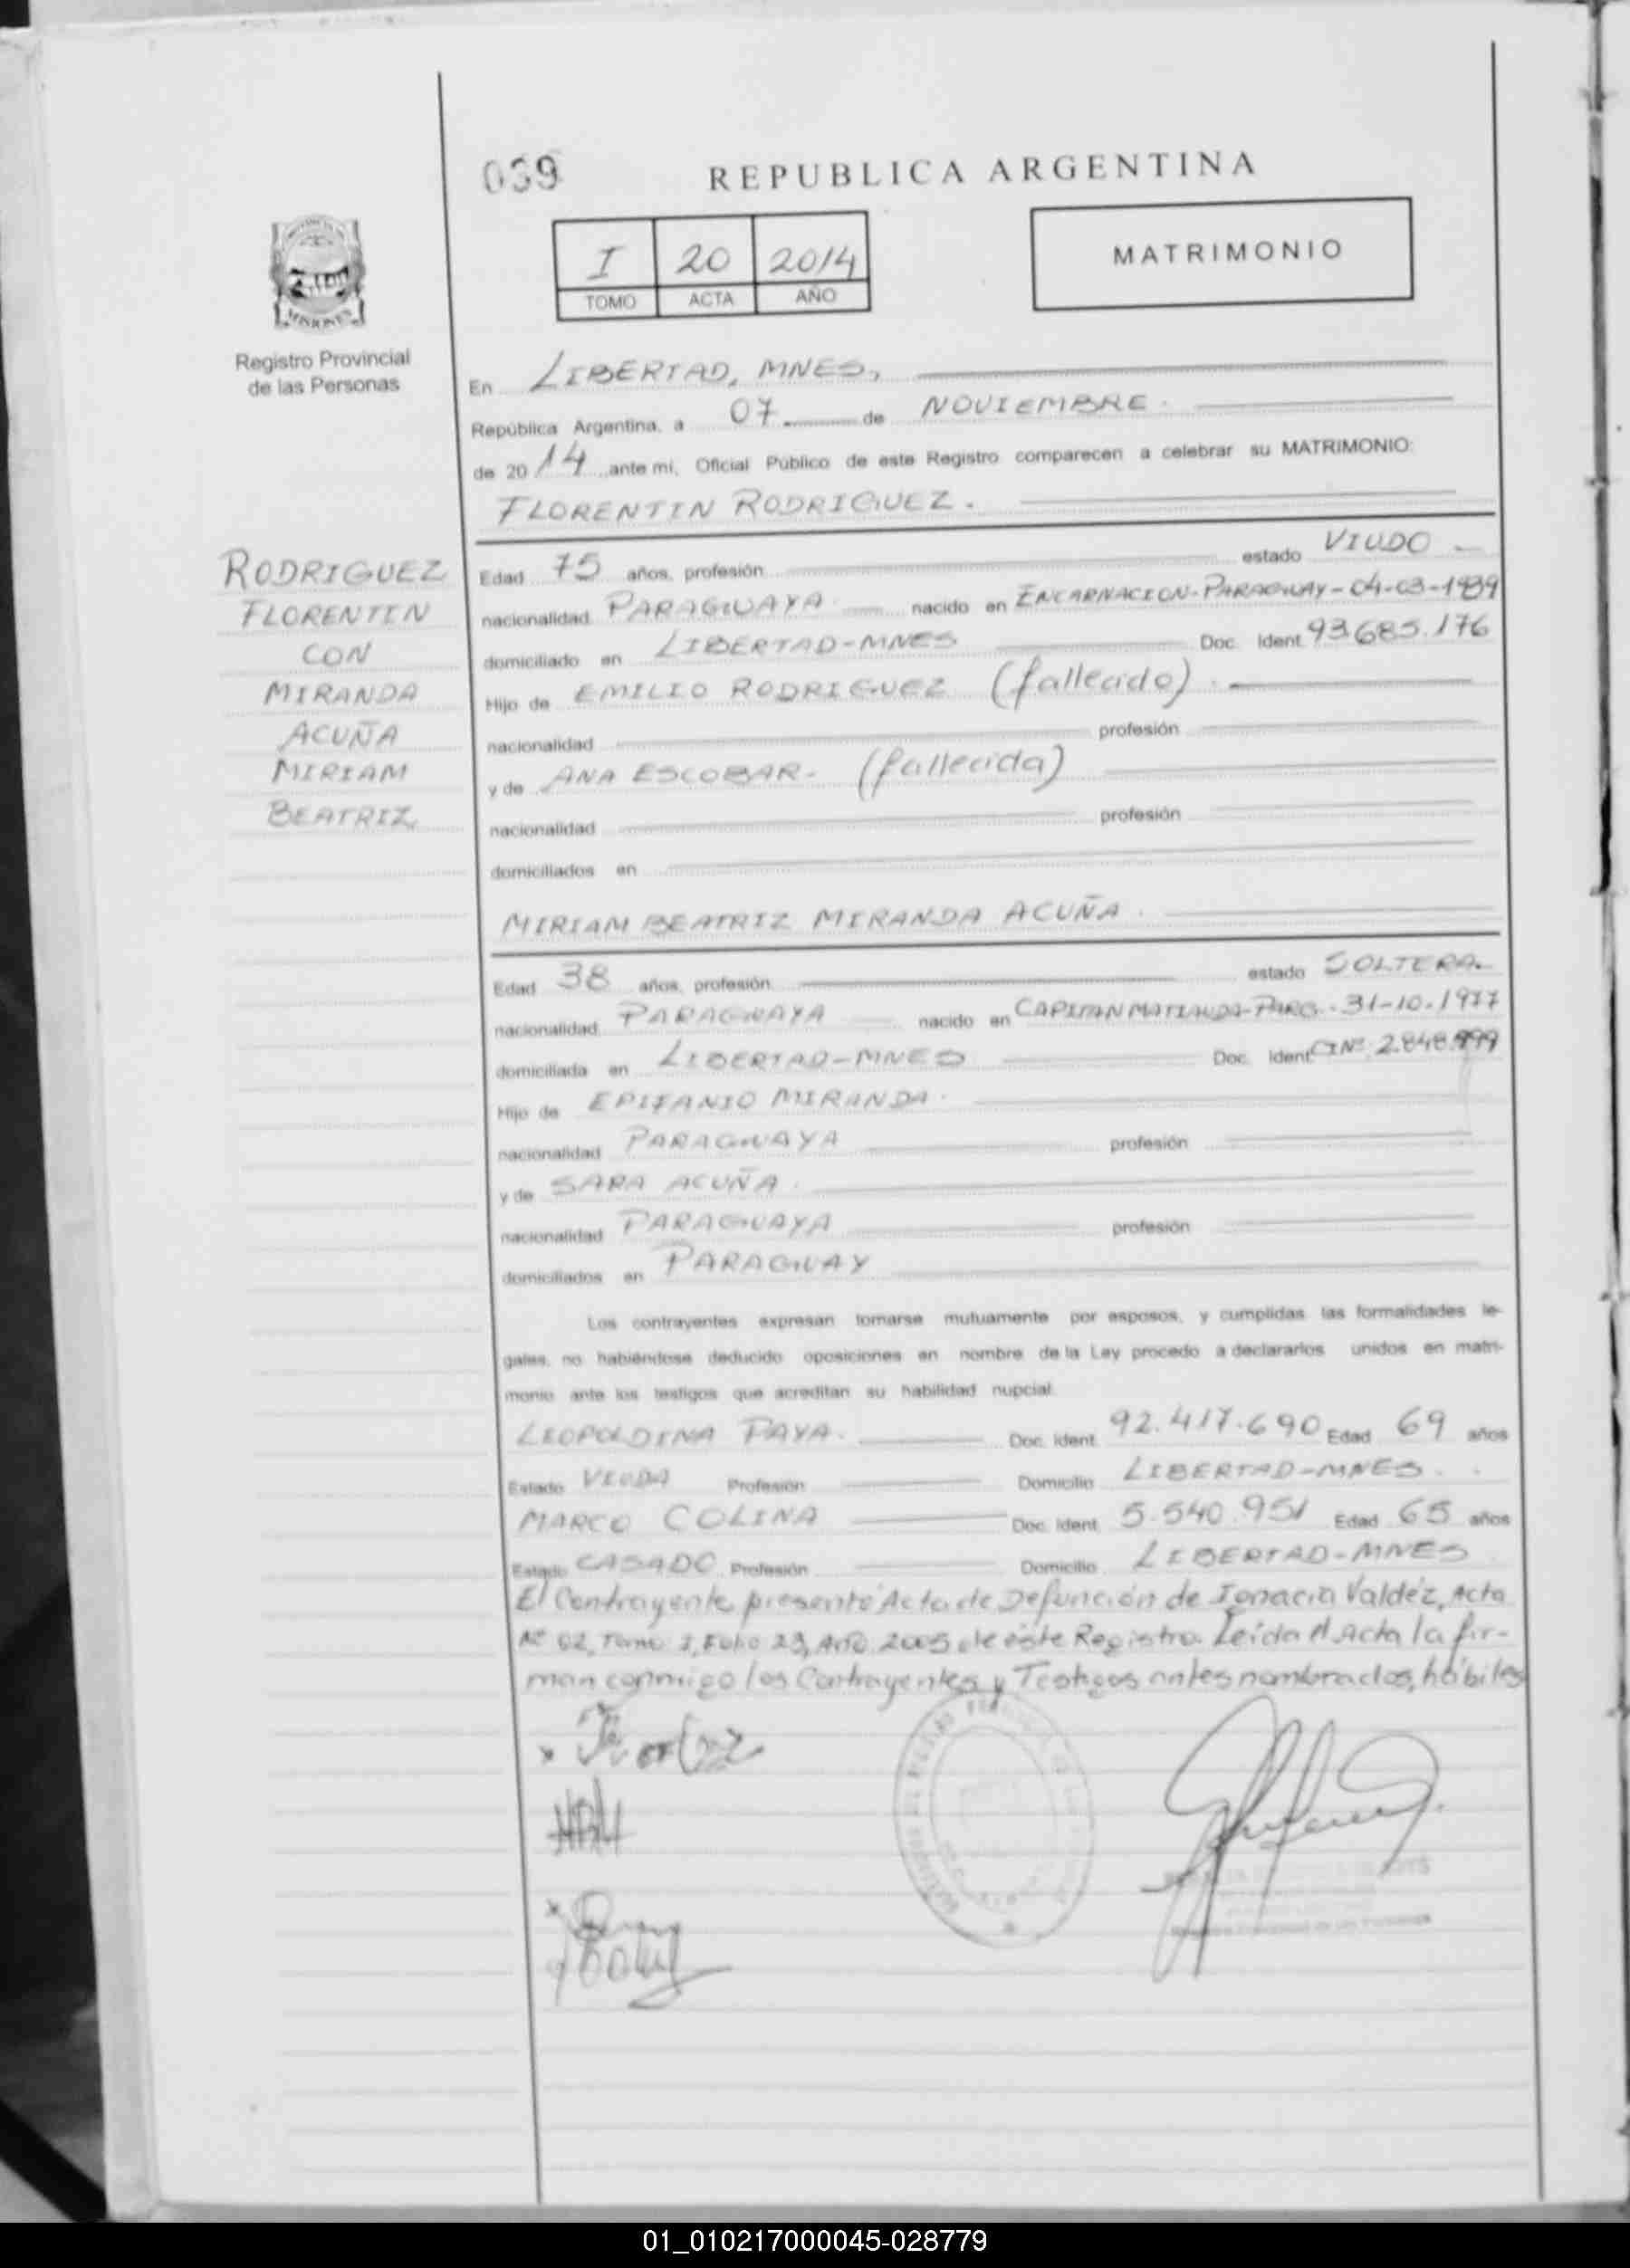 039
REPUBLICA ARGENTINA
I 20 2014
TOMO ACTA AÑO
MATRIMONIO
MISIONES
Registro Provincial
de las Personas
En LIBERTAD, MNES,
República Argentina, a 07 de NOVIEMBRE.
de 2014 ante mí, Oficial Público de este Registro comparecen a celebrar su MATRIMONIO:
FLORENTIN RODRIGUEZ.
RODRIGUEZ
FLORENTIN
CON
MIRANDA
ACUÑA
MIRIAM
BEATRIZ
Edad 75 años, profesión estado VIUDO
nacionalidad PARAGUAYA nacido en ENCARNACION-PARAGUAY-04-03-1939
domiciliado en LIBERTAD-MNES Doc. Ident. 93.685.176
Hijo de EMILIO RODRIGUEZ (fallecido).
nacionalidad profesión
y de ANA ESCOBAR- (fallecida)
nacionalidad profesión
domiciliados en
MIRIAM BEATRIZ MIRANDA ACUÑA.
Edad 38 años, profesión estado SOLTERA.
nacionalidad PARAGUAYA nacido en CAPITAN 31-10-1977
domiciliada en LIBERTAD-MNES Doc. Ident. CI Nº 2.848.999
Hijo de EPIFANIO MIRANDA.
nacionalidad PARAGUAYA profesión
y de SARA ACUÑA.
nacionalidad PARAGUAYA profesión
domiciliados en PARAGUAY
Los contrayentes expresan tomarse mutuamente por esposos, y cumplidas las formalidades le-
gales, no habiéndose deducido oposiciones en nombre de la Ley procedo a declararlos unidos en matri-
monio ante los testigos que acreditan su habilidad nupcial.
LEOPOLDINA PAYA. Doc. Ident. 92.417.690 Edad 69 años
Estado VIUDA Profesión Domicilio LIBERTAD-MNES.
MARCO COLINA Doc. Ident. 5.540.951 Edad 65 años
Estado CASADO Profesión Domicilio LIBERTAD-MNES
El Contrayente presentó Acta de Defunción de Ignacia Valdéz, Acta
Nº 02, Tomo I, Folio 23, Año 2005 de éste Registro. Leída el Acta la fir-
man conmigo los Contrayentes y Testigos antes nombrados, hábiles
01_010217000045-028779